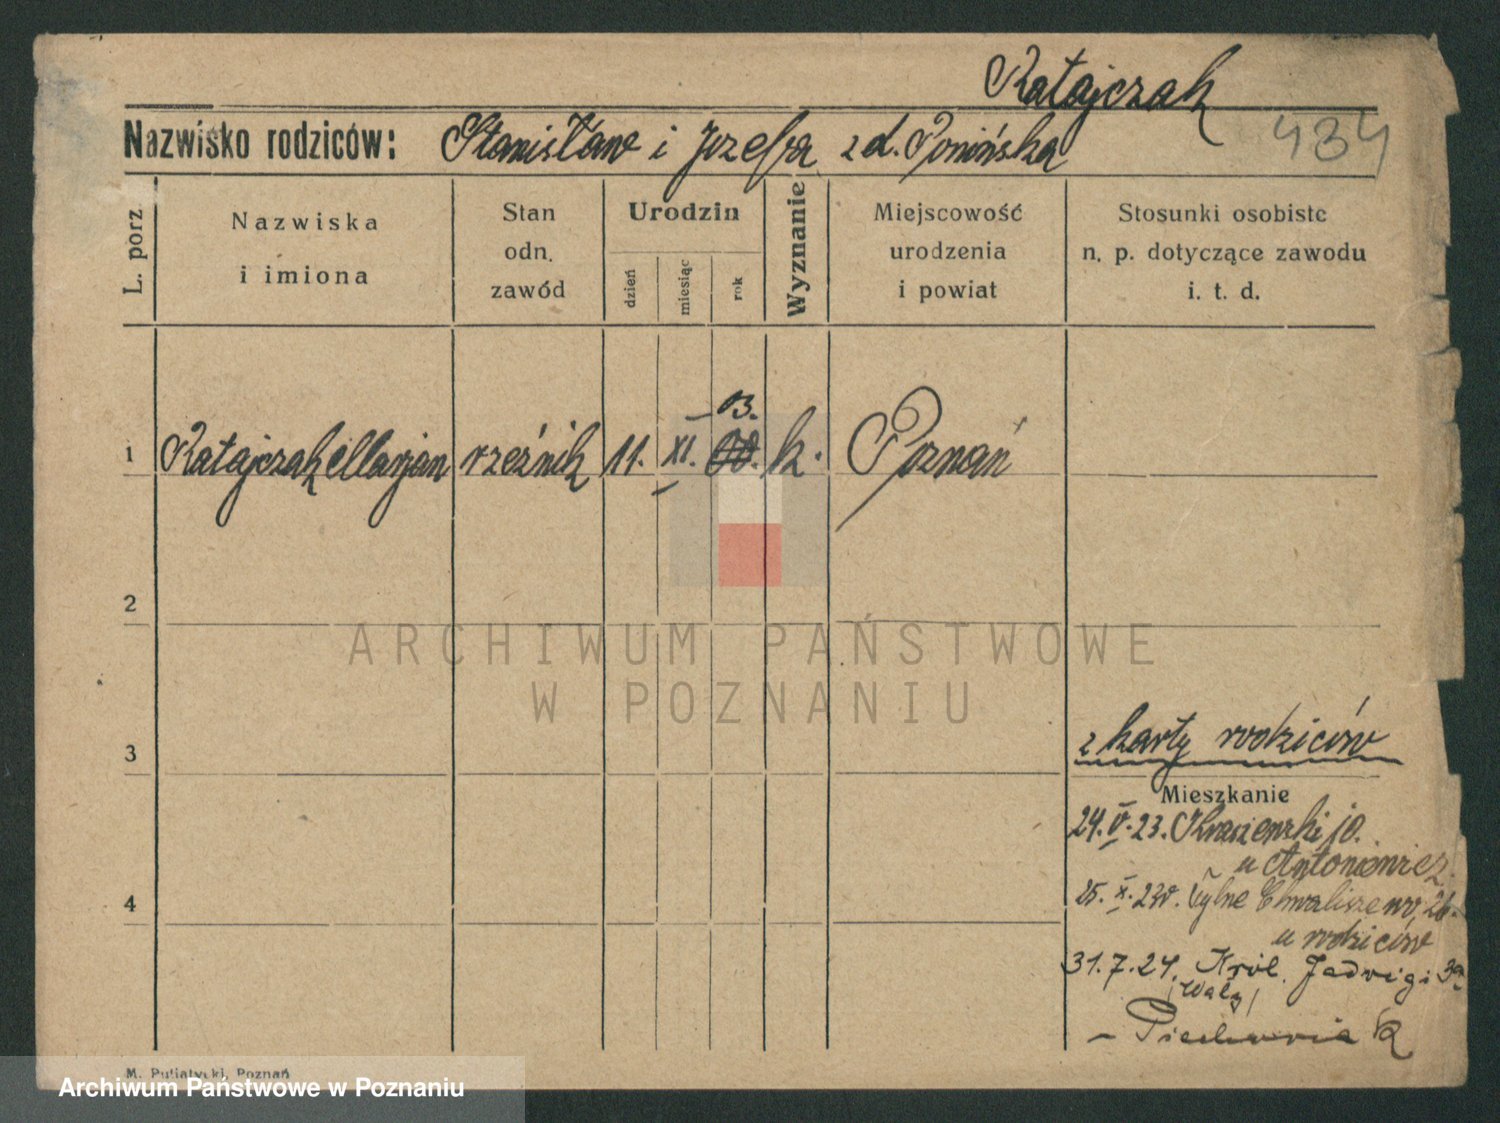 Ratajczak
Nazwisko rodziców: Stanisław i Józefa z d. Ponińska
434
L. porz
Nazwiska
i imiona
Stan
odn.
zawód
Urodzin
dzień
miesiąc
rok
Wyznanie
Miejscowość
urodzenia
i powiat
Stosunki osobiste
n. p. dotyczące zawodu
i. t. d.
03.
1 Ratajczak Marjan rzeźnik 11. XI. k. Poznań
2
ARCHIWUM PAŃSTWOWE
W POZNANIU
3
z karty rodziców
Mieszkanie
24. V. 23. Kraszewski 10.
u Antoniewicz
4
25. X. 23 Tylne Chwaliszewo, 26.
u rodziców
31.7.24. Król. Jadwigi 3a
/Wały/
- Piechowiak
M. Putiatycki, Poznań
Archiwum Państwowe w Poznaniu